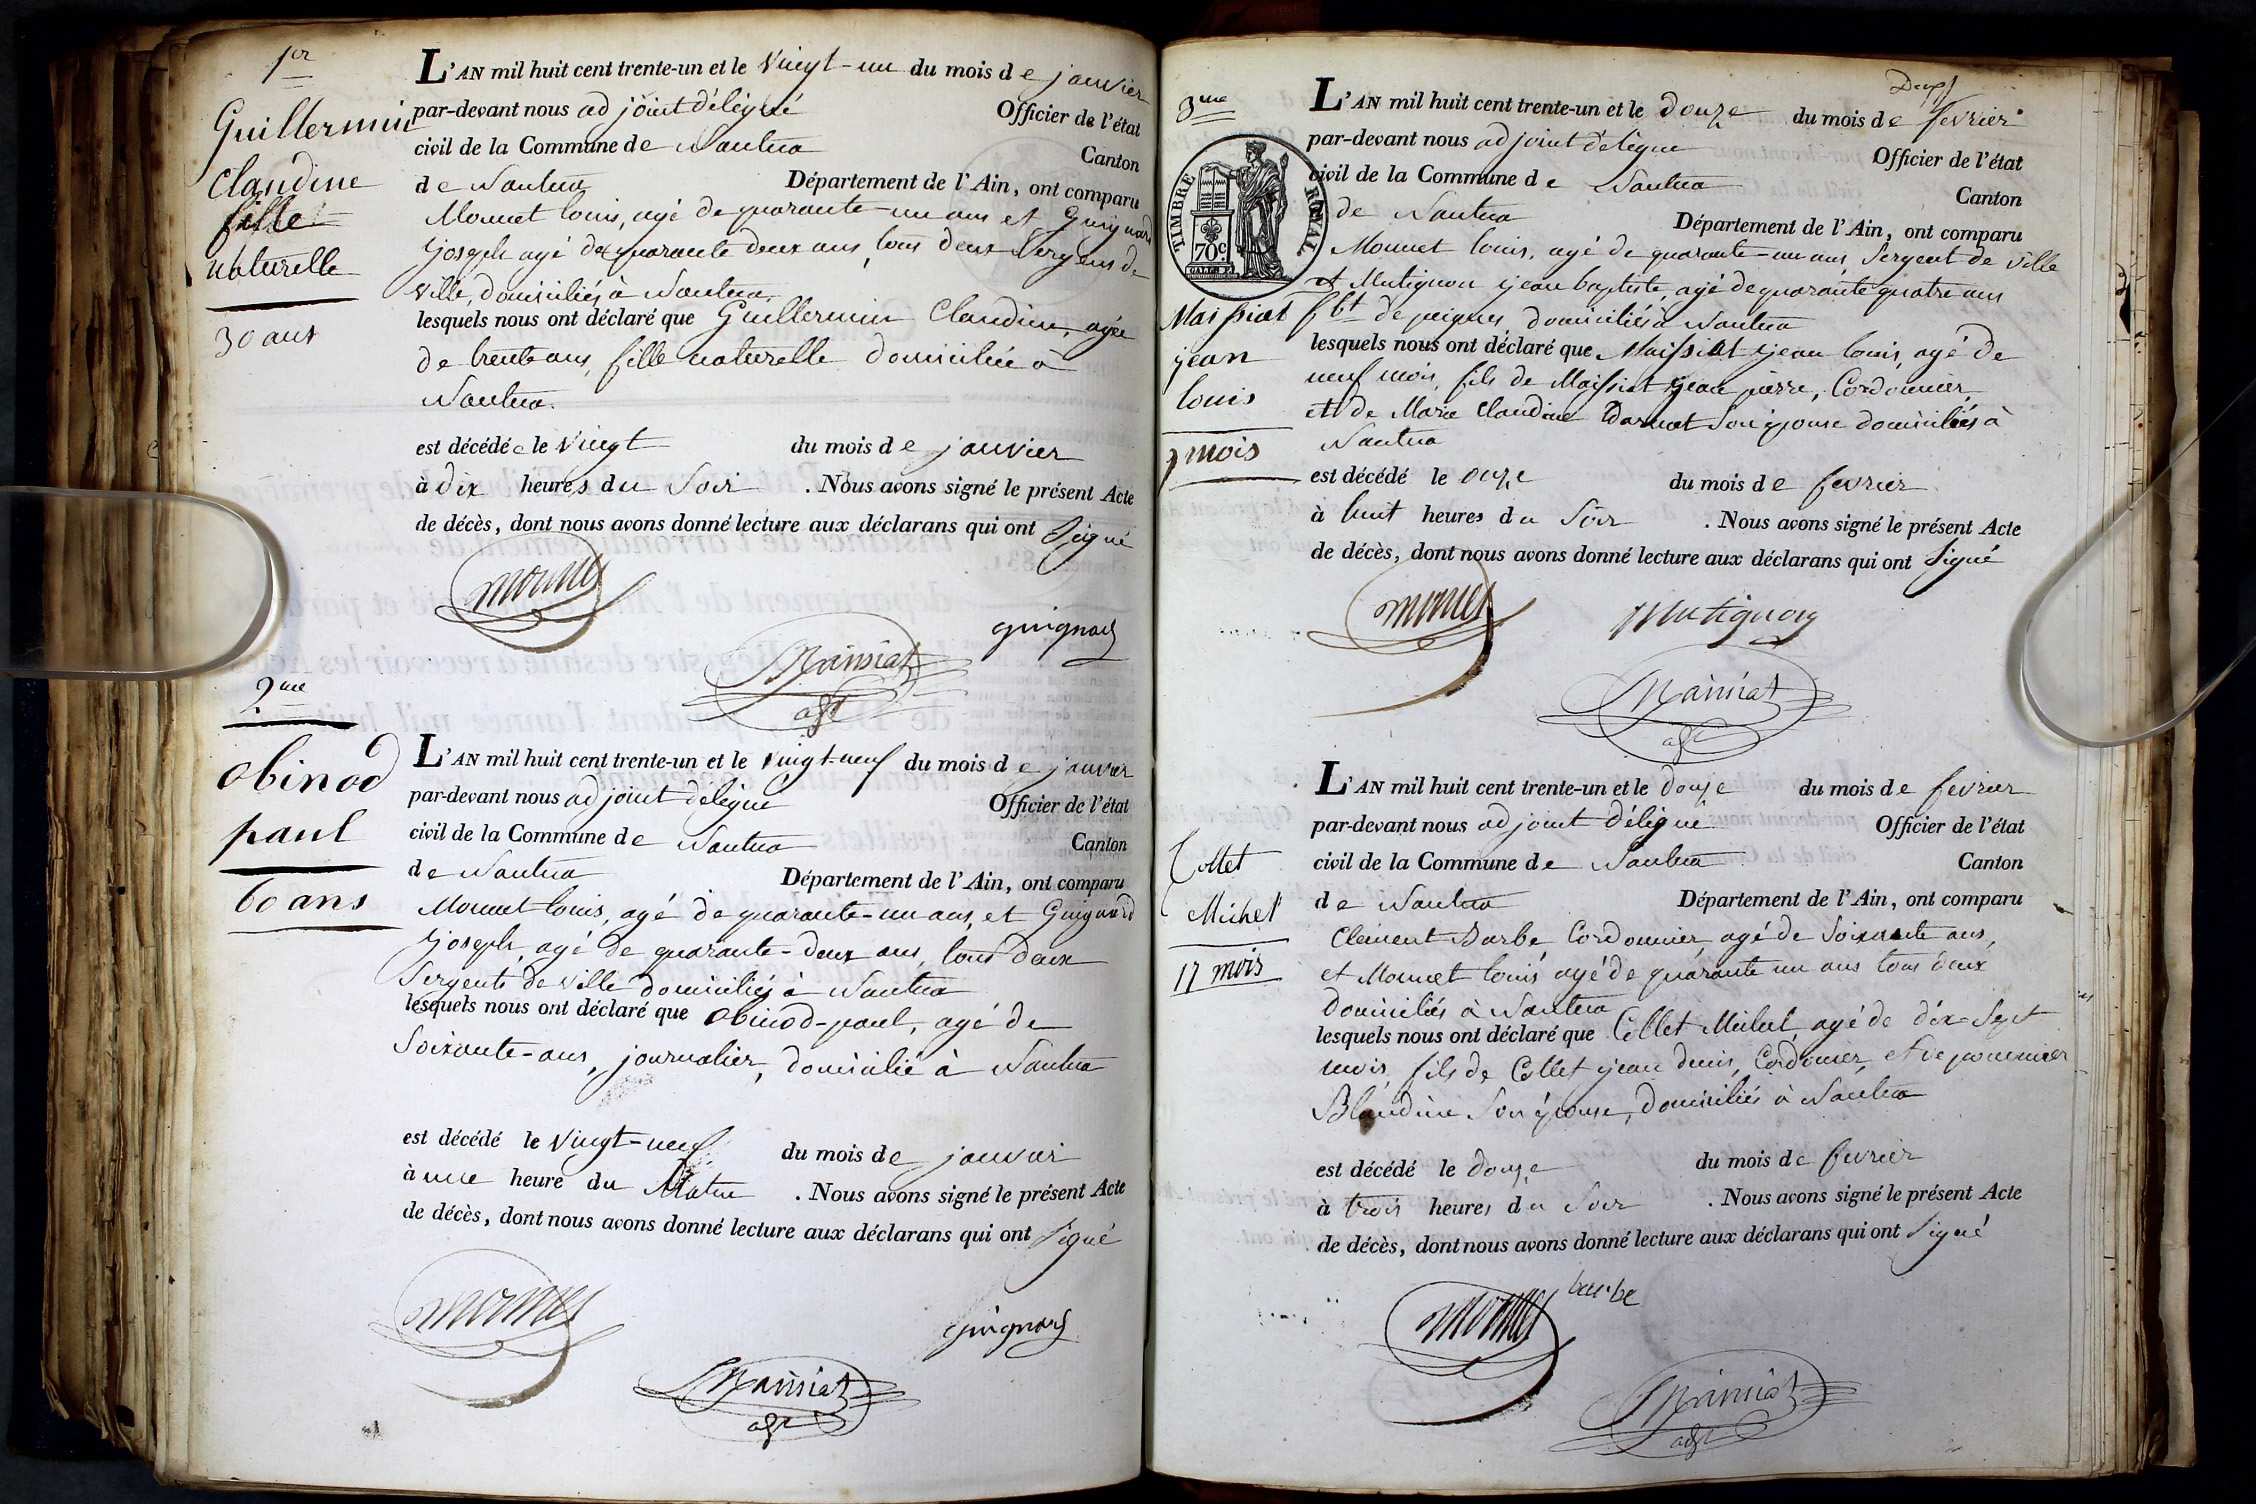 1er
Guillermin
Claudine
fille
naturelle
30 ans
L'AN mil huit cent trente-un et le Vingt-un du mois de janvier
par-devant nous adjoint délégué Officier de l'état
civil de la Commune de Nantua Canton
de Nantua Département de l'Ain, ont comparu
Monnet louis, agé de quarante-un ans et Guignard
joseph agé de quarante deux ans, tous deux Sergens de
Ville, domiciliés à Nantua,
lesquels nous ont déclaré que Guillermin Claudine, agée
de trente ans, fille naturelle domiciliée à
Nantua.
est décédée le Vingt du mois de janvier
à dix heures du Soir . Nous avons signé le présent Acte
de décès, dont nous avons donné lecture aux déclarans qui ont Signé
monnet
guignard
Maissiat
adjt
2me
obinod
paul
60 ans
L'AN mil huit cent trente-un et le vingt-neuf du mois de janvier
par-devant nous adjoint délégué Officier de l'état
civil de la Commune de Nantua Canton
de Nantua Département de l'Ain, ont comparu
Monnet louis, agé de quarante-un ans, et Guignard
joseph, agé de quarante-deux ans, tous deux
Sergents de Ville domiciliés à Nantua
lesquels nous ont déclaré que obinod-paul, agé de
Soixante-ans, journalier, domicilié à Nantua
est décédé le Vingt-neuf du mois de janvier
à une heure du Matin . Nous avons signé le présent Acte
de décès, dont nous avons donné lecture aux déclarans qui ont Signé
monnet
guignard
Maissiat
adjt
3me
TIMBRE ROYAL
70c
Maissiat
jean
louis
9 mois
L'AN mil huit cent trente-un et le douze du mois de fevrier
par-devant nous adjoint délégué Officier de l'état
civil de la Commune de Nantua Canton
de Nantua Département de l'Ain, ont comparu
Monnet louis, agé de quarante-un ans, Sergent de Ville
et Mutignon jean baptiste, agé de quarante quatre ans
fbt de peignes, domiciliés à Nantua
lesquels nous ont déclaré que Maissiat jean louis, agé de
neuf mois, fils de Maissiat jean pierre, Cordonnier,
et de Marie Claudine Son épouse domiciliés à
Nantua
est décédé le onze du mois de fevrier
à huit heures du Soir . Nous avons signé le présent Acte
de décès, dont nous avons donné lecture aux déclarans qui ont Signé
monnet
Mutignon
Maissiat
adjt
Collet
Michel
17 mois
L'AN mil huit cent trente-un et le douze du mois de fevrier
par-devant nous adjoint délégué Officier de l'état
civil de la Commune de Nantua Canton
de Nantua Département de l'Ain, ont comparu
Clement Barbe Cordonnier, agé de Soixante ans,
et Monnet louis agé de quarante un ans tous deux
domiciliés à Nantua
lesquels nous ont déclaré que Collet Michel, agé de dix-Sept
mois, fils de Collet jean denis, Cordonier, et de
Blandine Son épouse, domiciliés à Nantua
est décédé le douze du mois de fevrier
à trois heures du Soir . Nous avons signé le présent Acte
de décès, dont nous avons donné lecture aux déclarans qui ont Signé
monnet
barbe
Maissiat
adjt